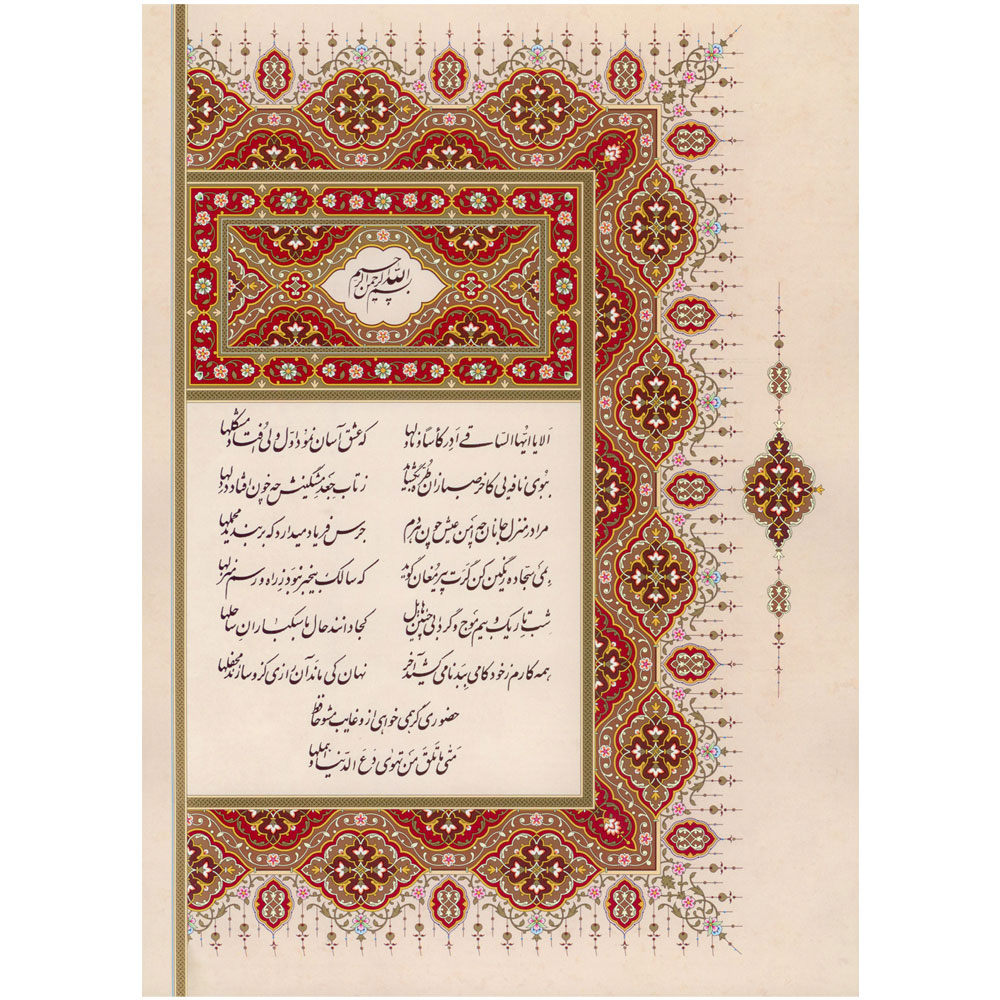 بسم الله الرحمن الرحیم
الا یا ایها الساقی ادر کاسا و ناولها که عشق آسان نمود اول ولی افتاد مشکلها
ببوی نافه‌ی کاخر صبا زان طره بگشاید ز تاب جعد مشکینش چه خون افتاد در دلها
مرا در منزل جانان چه امن عیش چون هر دم جرس فریاد میدارد که بربندید محملها
بمی سجاده رنگین کن گرت پیر مغان گوید که سالک بیخبر نبود ز راه و رسم منزلها
شب تاریک و بیم موج و گردابی چنین هایل کجا دانند حال ما سبکباران ساحلها
همه کارم ز خود کامی ببدنامی کشید آخر نهان کی ماند آن رازی کزو سازند محفلها
حضوری گر همی خواهی ازو غایب مشو حافظ
متی ما تلق من تهوی دع الدنیا و اهملها